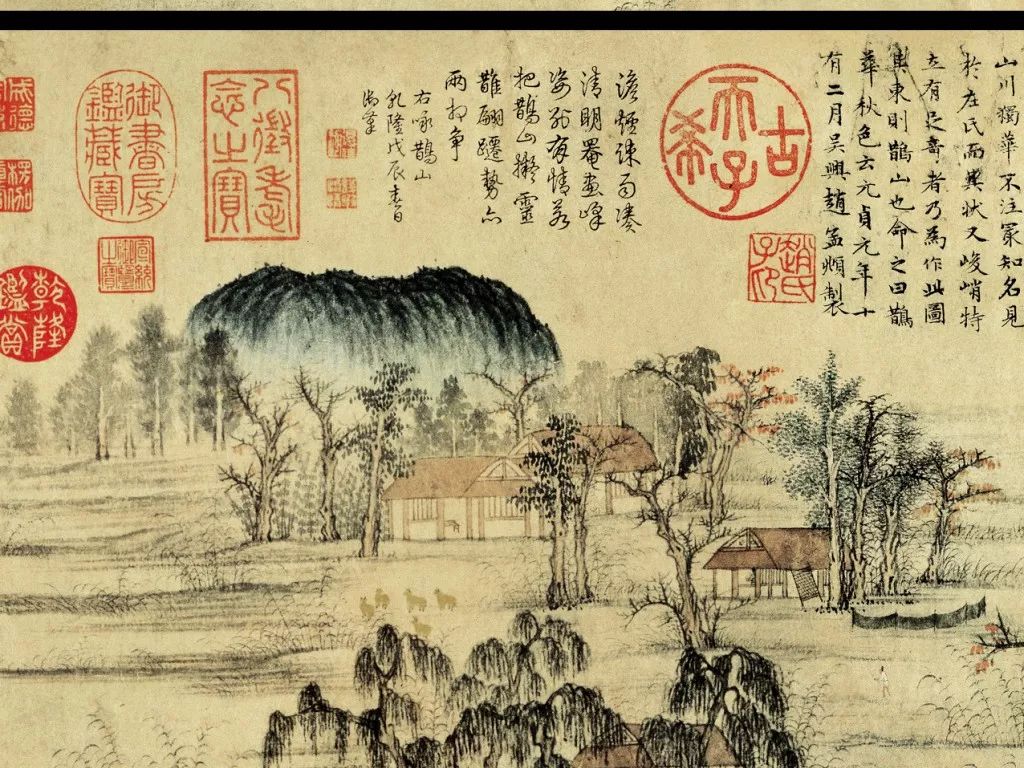 山川獨華不注冣知名見
於左氏而其狀又峻峭特
立有足奇者乃為作此圖
其東則鵲山也命之曰鵲
華秋色云元貞元年十
有二月吳興趙孟頫製
趙氏子昂
古希天子
澹煙疎雨湊
清明罨畫峰
姿別有情若
把鵲山擬靈
鵲翩躚勢亦
兩相爭
右咏鵲山
乾隆戊辰春日
御筆
八徵耄念之寶
御書房鑑藏寶
宣統御覽之寶
乾隆鑑賞